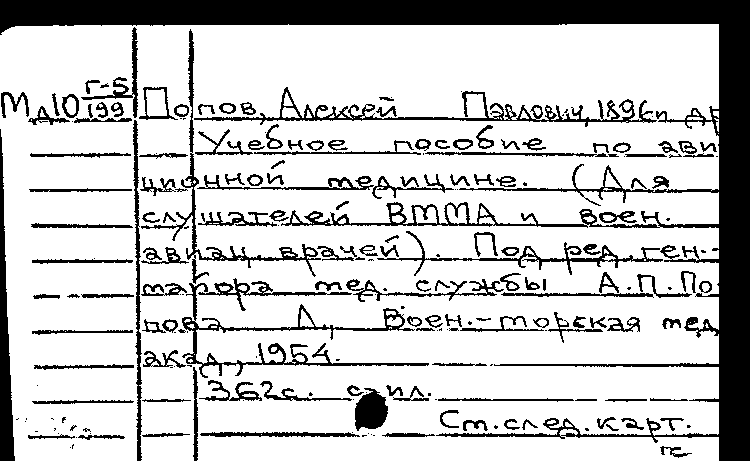 Мд10 Г-5/199 Попов, Алексей Павлович, 1896 и др
Учебное пособие по ави
ционной медицине. (Для
слушателей ВММА и воен.
авиац. врачей). Под ред. ген.-
майора мед. службы А.П. По-
пова. Л., Воен.-морская мед.
акад., 1954.
362с. с ил.
См. след. карт.